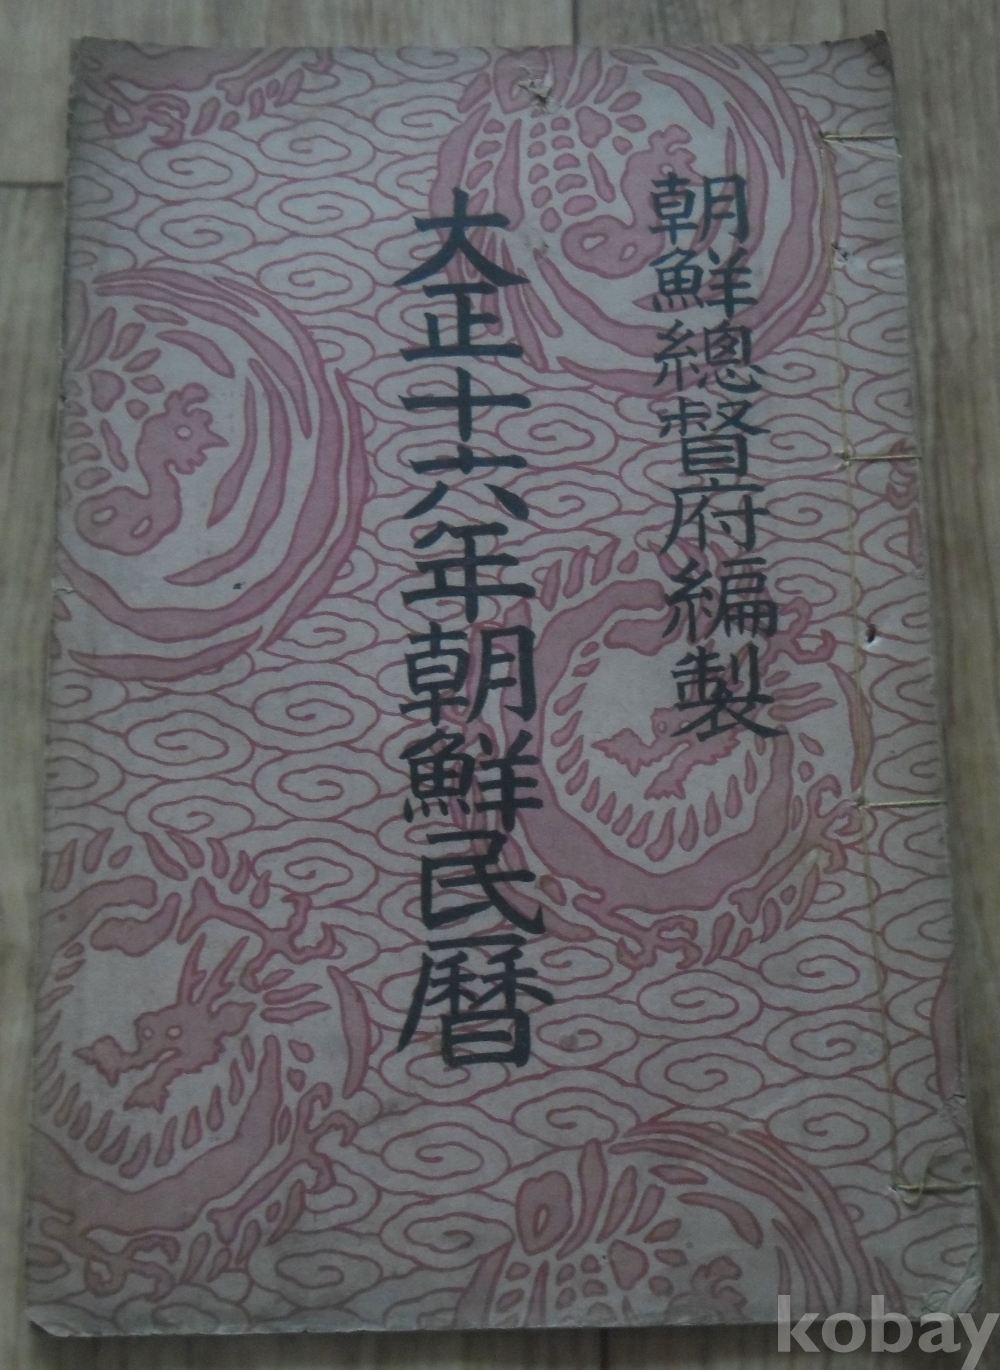 朝鮮總督府編製
大正十六年朝鮮民曆
kobay